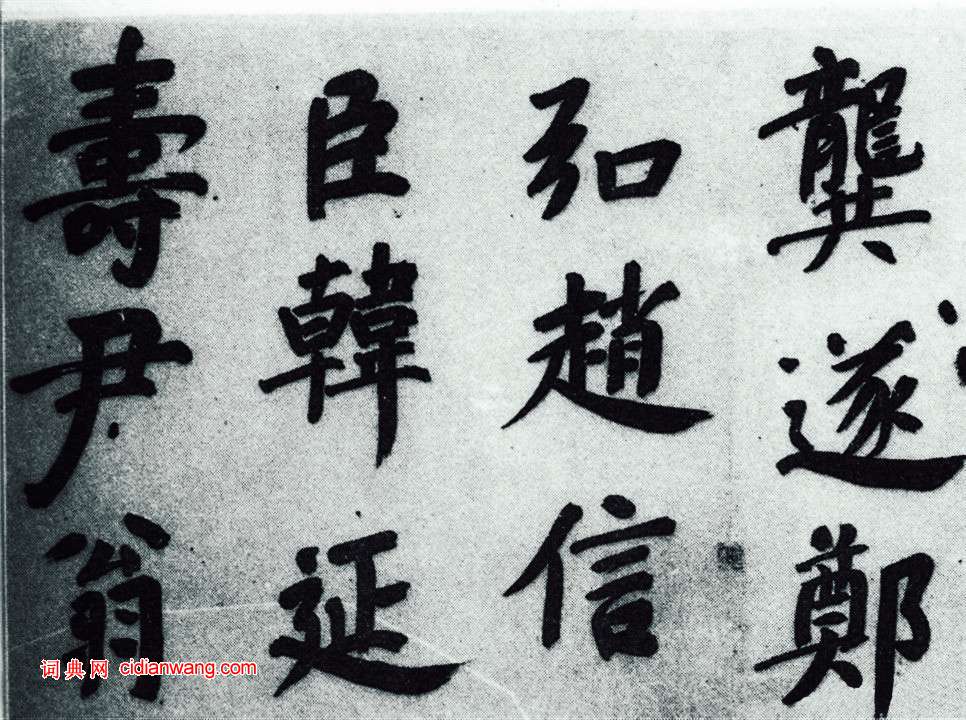 龔遂鄭
弘趙信
臣韓延
壽尹翁
词典网 cidianwang.com